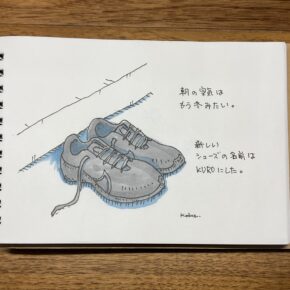 朝の空気は
もう冬みたい。
新しい
シューズの名前は
KUROにした。